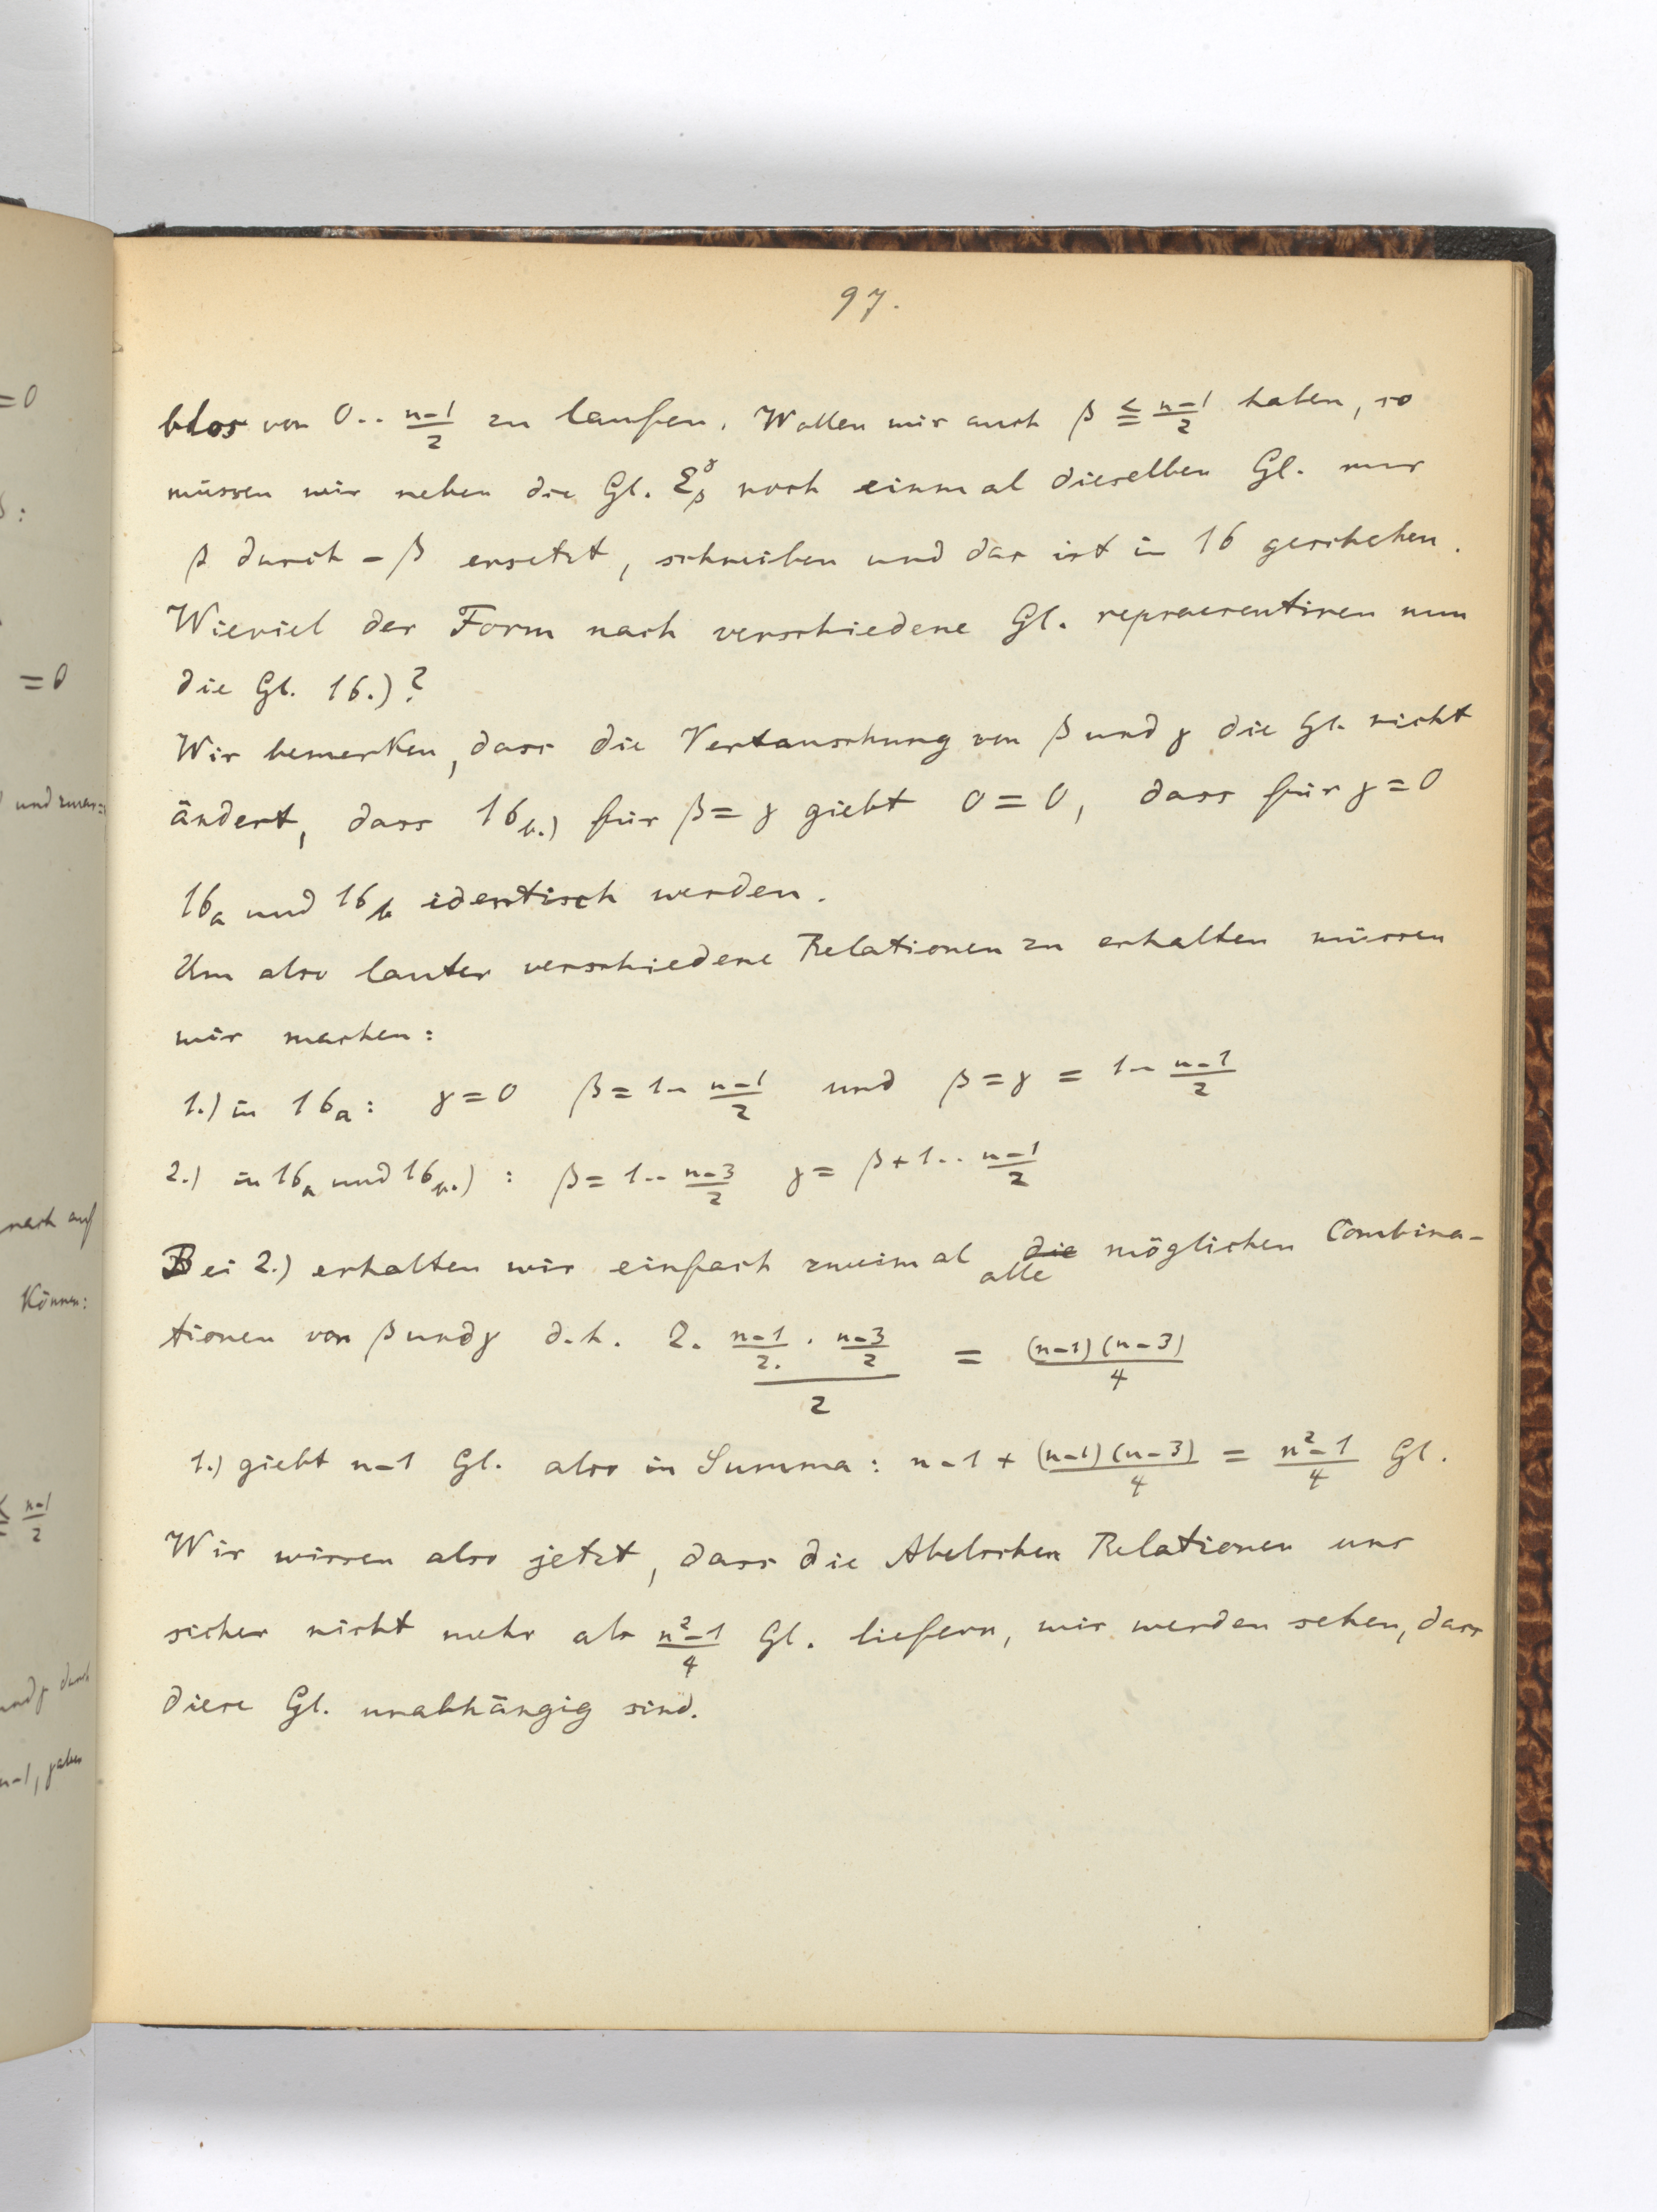 97.
blos von 0 .. \frac{n-1}{2} zu laufen. Wollen wir auch β ≦ \frac{n-1}{2} haben, so
müssen wir neben die Gl. Σ_β^γ noch einmal dieselben Gl. nur
β durch -β ersetzt, schreiben und das ist in 16 geschehen.
Wieviel der Form nach verschiedene Gl. repraesentiren nun
die Gl. 16.)?
Wir bemerken, dass die Vertauschung von β und γ die Gl. nicht
ändert, dass 16_{b.)} für β = γ giebt 0 = 0, dass für γ = 0
16_a und 16_b identisch werden.
Um also lauter verschiedene Relationen zu erhalten müssen
wir machen:
1.) in 16_a: γ = 0 β = 1 .. \frac{n-1}{2} und β = γ = 1 .. \frac{n-1}{2}
2.) in 16_a und 16_{b.)} : β = 1 .. \frac{n-3}{2} γ = β + 1 .. \frac{n-1}{2}
Bei 2.) erhalten wir einfach zweimal die alle möglichen Combina-
tionen von β und γ d.h. 2. \frac{\frac{n-1}{2.} . \frac{n-3}{2}}{2} = \frac{(n-1)(n-3)}{4}
1.) giebt n-1 Gl. also in Summa: n-1 + \frac{(n-1)(n-3)}{4} = \frac{n^2-1}{4} Gl.
Wir wissen also jetzt, dass die Abelschen Relationen uns
sicher nicht mehr als \frac{n^2-1}{4} Gl. liefern, wir werden sehen, dass
diese Gl. unabhängig sind.
= 0
= 0
und zwar:
nach auf
Können:
≦ \frac{n-1}{2}
und γ durch
n-1,